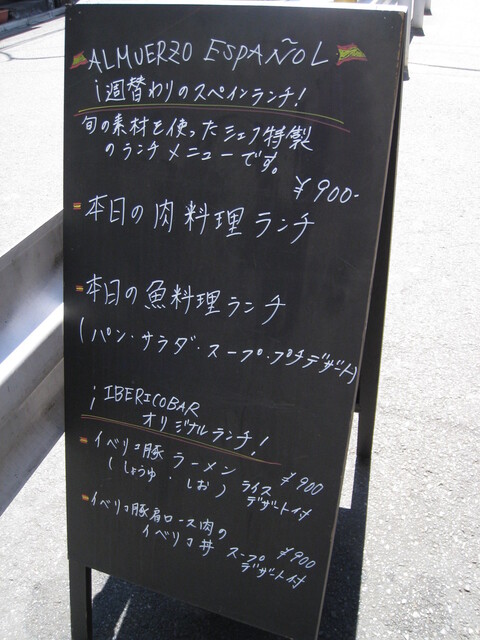 ALMUERZO ESPAÑOL
¡週替わりのスペインランチ!
旬の素材を使ったシェフ特製
のランチメニューです。
¥900-
本日の肉料理ランチ
本日の魚料理ランチ
(パン・サラダ・スープ・プチデザート)
¡IBERICOBAR
オリジナルランチ!
イベリコ豚ラーメン ¥900
(しょうゆ・しお) ライス
デザート付
イベリコ豚肩ロース肉の
イベリコ丼 スープ ¥900
デザート付